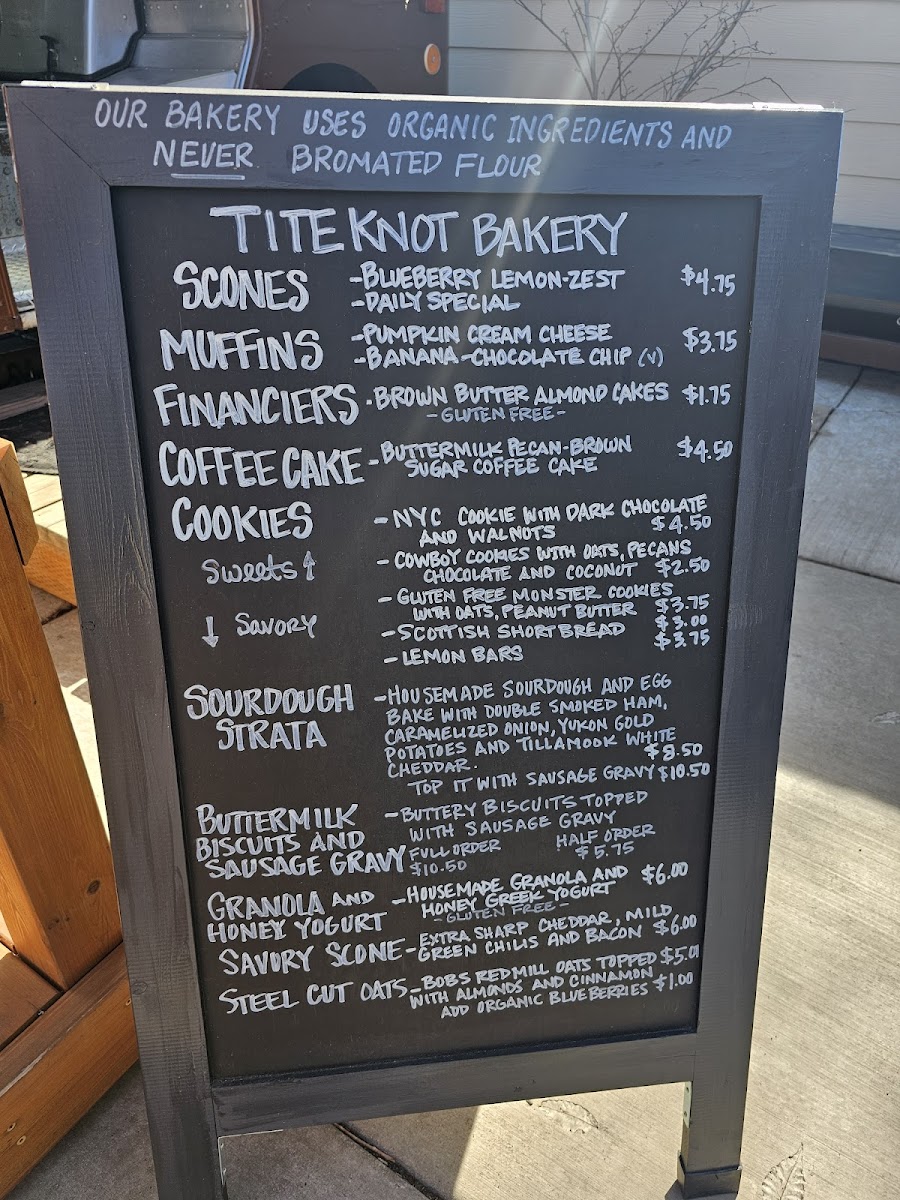 OUR BAKERY USES ORGANIC INGREDIENTS AND
NEVER BROMATED FLOUR
TITE KNOT BAKERY
SCONES -BLUEBERRY LEMON-ZEST $4.75
-DAILY SPECIAL
MUFFINS -PUMPKIN CREAM CHEESE $3.75
-BANANA-CHOCOLATE CHIP (V)
FINANCIERS -BROWN BUTTER ALMOND CAKES $1.75
-GLUTEN FREE-
COFFEE CAKE -BUTTERMILK PECAN-BROWN $4.50
SUGAR COFFEE CAKE
COOKIES -NYC COOKIE WITH DARK CHOCOLATE
AND WALNOTS $4.50
Sweets↑ -COWBOY COOKIES WITH OATS, PECANS
CHOCOLATE AND COCONUT $2.50
-GLUTEN FREE MONSTER COOKIES
WITH OATS, PEANUT BUTTER $3.75
↓ Savory -SCOTTISH SHORTBREAD $3.00
-LEMON BARS $3.75
SOURDOUGH -HOUSEMADE SOURDOUGH AND EGG
STRATA BAKE WITH DOUBLE SMOKED HAM,
CARAMELIZED ONION, YUKON GOLD
POTATOES AND TILLAMOOK WHITE
CHEDDAR. $8.50
TOP IT WITH SAUSAGE GRAVY $10.50
BUTTERMILK -BUTTERY BISCUITS TOPPED
BISCUITS AND WITH SAUSAGE GRAVY
SAUSAGE GRAVY FULL ORDER HALF ORDER
$10.50 $5.75
GRANOLA AND -HOUSEMADE GRANOLA AND $6.00
HONEY YOGURT HONEY GREEK YOGURT
-GLUTEN FREE-
SAVORY SCONE -EXTRA SHARP CHEDDAR, MILD
GREEN CHILIS AND BACON $6.00
STEEL CUT OATS -BOBS REDMILL OATS TOPPED $5.00
WITH ALMONDS AND CINNAMON
ADD ORGANIC BLUEBERRIES $1.00